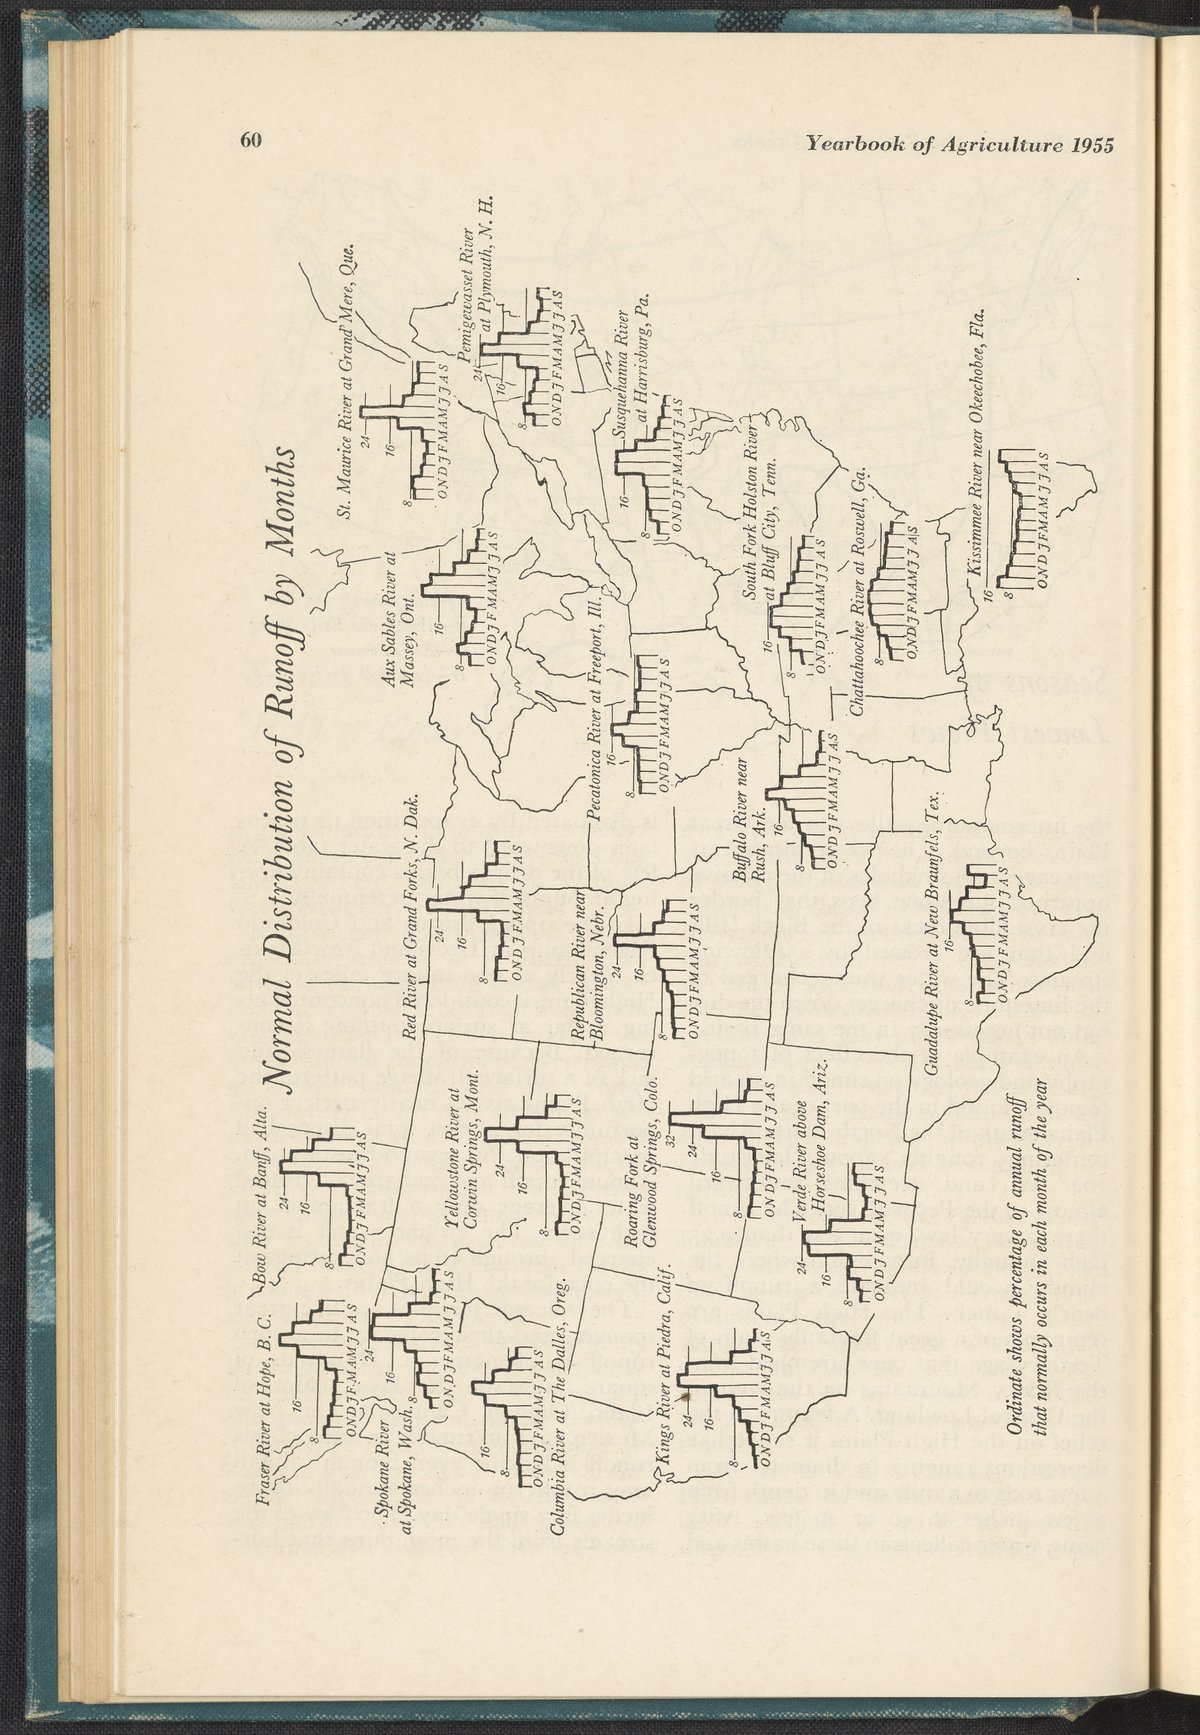 60
Yearbook of Agriculture 1955
Normal Distribution of Runoff by Months
Fraser River at Hope, B. C.
16
8
ONDJFMAMJJAS
Bow River at Banff, Alta.
24
16
8
ONDJFMAMJJAS
Spokane River
at Spokane, Wash.
24
16
8
ONDJFMAMJJAS
Columbia River at The Dalles, Oreg.
16
8
ONDJFMAMJJAS
Yellowstone River at
Corwin Springs, Mont.
24
16
8
ONDJFMAMJJAS
Red River at Grand Forks, N. Dak.
24
16
8
ONDJFMAMJJAS
Aux Sables River at
Massey, Ont.
16
8
ONDJFMAMJJAS
St. Maurice River at Grand' Mere, Que.
24
16
8
ONDJFMAMJJAS
Pemigewasset River
at Plymouth, N. H.
24
16
8
ONDJFMAMJJAS
Susquehanna River
at Harrisburg, Pa.
16
8
ONDJFMAMJJAS
Pecatonica River at Freeport, Ill.
16
8
ONDJFMAMJJAS
Republican River near
Bloomington, Nebr.
24
16
8
ONDJFMAMJJAS
Roaring Fork at
Glenwood Springs, Colo.
32
24
16
8
ONDJFMAMJJAS
Kings River at Piedra, Calif.
24
16
8
ONDJFMAMJJAS
Verde River above
Horseshoe Dam, Ariz.
24
16
8
ONDJFMAMJJAS
Buffalo River near
Rush, Ark.
16
8
ONDJFMAMJJAS
South Fork Holston River
at Bluff City, Tenn.
16
8
ONDJFMAMJJAS
Chattahoochee River at Roswell, Ga.
8
ONDJFMAMJJAS
Guadalupe River at New Braunfels, Tex.
16
8
ONDJFMAMJJAS
Kissimmee River near Okeechobee, Fla.
16
8
ONDJFMAMJJAS
Ordinate shows percentage of annual runoff
that normally occurs in each month of the year